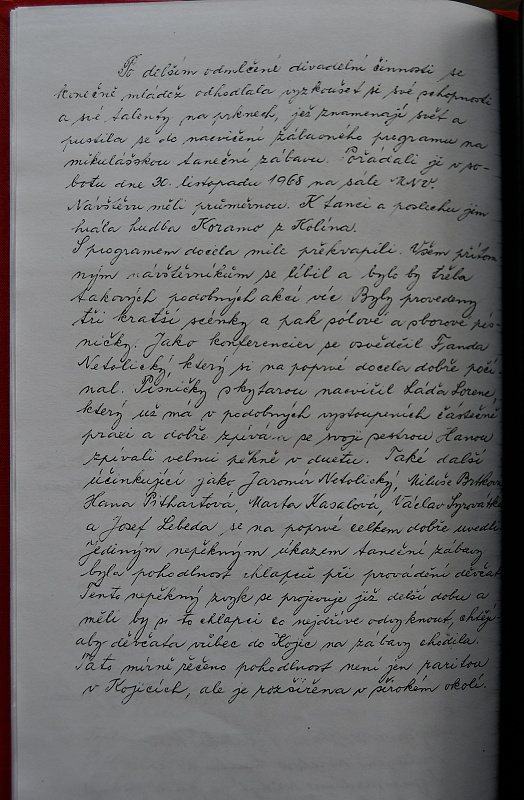 Po delším odmlčené divadelní činnosti se
konečně mládež odhodlala vyzkoušet si své schopnosti
a své talenty na prknech, jež znamenají svět a
pustila se do nacvičení zábavného programu na
mikulášskou taneční zábavu. Pořádali ji v so-
botu dne 30. listopadu 1968 na sále MNV.
Návštěvu měli průměrnou. K tanci a poslechu jim
hrála hudba Koramo z Kolína.
S programem docela mile překvapili. Všem přítom
ným návštěvníkům se líbil a bylo by třeba
takových podobných akcí víc. Byly provedeny
tři kratší scénky a pak sólové a sborové pís-
ničky. Jako konferencier se osvědčil Franda
Netolický, který si na poprvé docela dobře poči-
nal. Písničky s kytarou nacvičil Láďa Lorenc,
který už má v podobných vystoupeních částečně
praci a dobře zpívá a se svojí sestrou Hanou
zpívali velmi pěkně v duetu. Také další
účinkující jako Jaromír Netolický, Miluše Brtkova
Hana Pithartová, Marta Kasalová, Václav Syrovátka
a Josef Lebeda se na poprvé celkem dobře uvedli
Jediným nepěkným úkazem taneční zábavy
byla pohodlnost chlapců při provádění děvčat
Tento nepěkný zvyk se projevuje již delší dobu a
měli by si to chlapci co nejdříve odvyknout, chtějí-
aby děvčata vůbec do Kojic na zábavy chodila.
Tato mírně řečeno pohodlnost není jen raritou
v Kojicích, ale je rozšířena v širokém okolí.